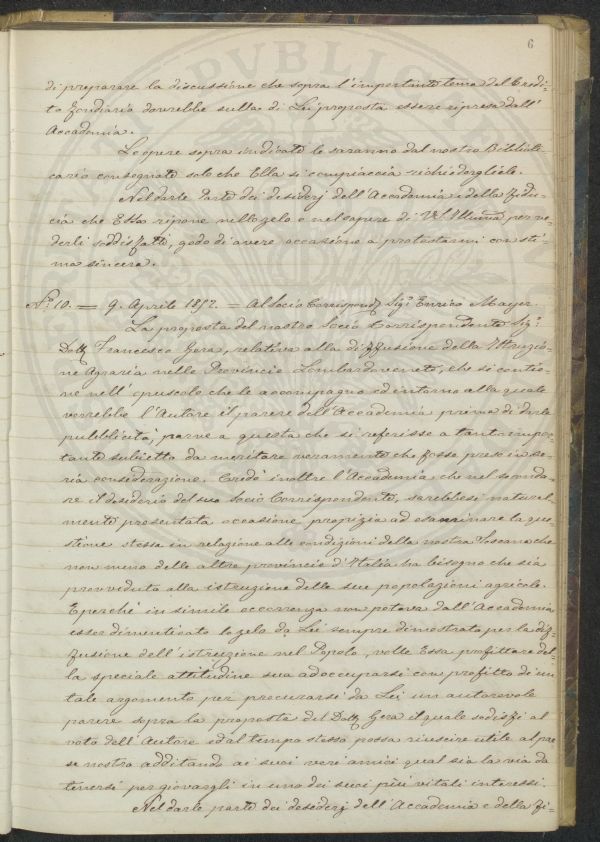 6
di preparare la discussione che sopra l'importante tema del Credi-
to fondiario dovrebbe sulla di Lei proposta essere ripresa dall'
Accademia.
Le opere sopra indicate le saranno dal nostro Bibliote
cario consegnate solo che Ella si compiaccia richiedergliele.
Nel darle parte dei desiderj dell'Accademia e della fidu-
cia che Essa ripone nello zelo e nel sapere di V. S. Illma per ve-
derli soddisfatti, godo di avere occasione a protestarmi con sti-
ma sincera.
N.° 10. = 9. Aprile 1852. = Al Socio Corrispond.e Sig.r Enrico Mayer.
La proposta del nostro Socio Corrispondente Sig.r
Dott. Francesco Gera, relativa alla diffusione della Istruzio-
ne Agraria nelle Provincie Lombardo venete, che si contie-
ne nell'opuscolo che le accompagno ed intorno alla quale
vorrebbe l'Autore il parere dell'Accademia prima di darle
pubblicità, parve a questa che si referisse a tanto impor-
tante subietto da meritare veramente che fosse preso in se-
ria considerazione. Credè inoltre l'Accademia che nel seconda-
re il desiderio del suo Socio Corrispondente, sarebbesi natural-
mente presentata occasione propizia ad esaminare la que-
stione stessa in relazione alle condizioni della nostra Toscana che
non meno delle altre provincie d'Italia ha bisogno che sia
provveduto alla istruzione delle sue popolazioni agricole.
E perchè in simile occorrenza non poteva dall'Accademia
esser dimenticato lo zelo da Lei sempre dimostrato per la dif-
fusione dell'istruzione nel Popolo, volle Essa profittare del-
la speciale attitudine sua ad occuparsi con profitto di un
tale argomento per procurarsi da Lei un autorevole
parere sopra la proposta del Dott. Gera il quale sodisfi al
voto dell'Autore ed al tempo stesso possa riuscire utile al pae
se nostro additando ai suoi veri amici qual sia la via da
tenersi per giovargli in uno dei suoi più vitali interessi.
Nel darle parte dei desiderj dell'Accademia e della fi-